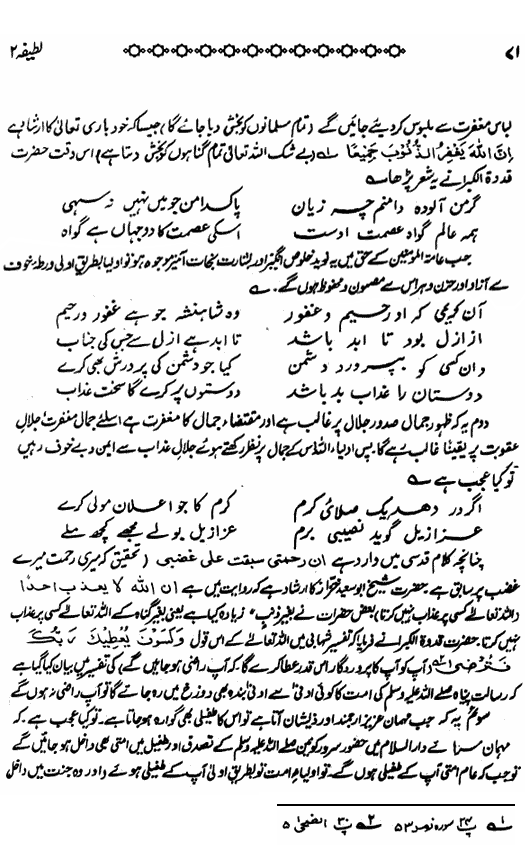 ۷۱ لطیفہ ۲
لباس مغفرت سے ملبوس کر دیئے جائیں گے (تمام مسلمانوں کو بخش دیا جائے گا) جیسا کہ خود باری تعالیٰ کا ارشاد ہے
اِنَّ اللّٰهَ يَغْفِرُ الذُّنُوْبَ جَمِيْعًا ۱ (بے شک اللہ تعالیٰ تمام گناہوں کو بخش دیتا ہے) اس وقت حضرت
قدوۃ الکبرا نے یہ شعر پڑھا
گر من آلودہ دامنم چہ زیاں پاکدامن جو میں نہیں نہ سہی
ہمہ عالم گواہ عصمت اوست اسکی عصمت کا دو جہاں ہے گواہ
جب عامۃ المومنین کے حق میں یہ نوید خلوص انگیز اور بشارت نجات آمیز موجود ہو تو اولیا بطریق اولیٰ ورطۂ خوف
سے آزاد اور حزن و ہراس سے مصون و محفوظ ہوں گے۔
آن کریمی کہ او رحیم و غفور وہ شاہنشہ جو ہے غفور و رحیم
از ازل بود تا ابد باشد تا ابد ہے ازل سے جس کی جناب
دان کسی کو بپرورد دشمن کیا جو دشمن کی پرورش بھی کرے
دوستان را عذاب بد باشد دوستوں پر کرے گا سخت عذاب
دوم یہ کہ ظہور جمال صدور جلال پر غالب ہے اور مقتضاء جمال کا مغفرت ہے اسلئے جمال مغفرت جلال
عقوبت پر یقیناً غالب رہے گا۔ پس اولیاء اللہ اس کے جمال پر نظر رکھتے ہوئے جلال عذاب سے ایمن و بے خوف رہیں
تو کیا عجب ہے
اگر در دھد یک صلائ کرم کرم کا جو اعلان مولیٰ کرے
عزازیل گوید نصیبی برم عزازیل بولے مجھے کچھ ملے
چنانچہ کلام قدسی میں وارد ہے ان رحمتی سبقت علی غضبی (تحقیق کہ میری رحمت میرے
غضب پر سابق ہے۔ حضرت شیخ ابو سعید خراز کا ارشاد ہے کہ روایت میں ہے ان الله لا یعذب احدا
(اللہ تعالےٰ کسی پر عذاب نہیں کرتا) بعض حضرات نے بغیر ذنب زیادہ کیا ہے یعنی بغیر گناہ کے اللہ تعالےٰ کسی پر عذاب
نہیں کرتا۔ حضرت قدوۃ الکبرا نے فرمایا کہ تفسیر نعمانی میں اللہ تعالےٰ کے اس قول وَلَسَوْفَ يُعْطِيْكَ رَبُّكَ
فَتَرْضٰى ۲ (آپ کو آپ کا پروردگار اس قدر عطا کرے گا کہ آپ راضی ہو جائیں گے) کی تفسیر میں بیان کیا گیا ہے
کہ رسالت پناہ صلے اللہ علیہ وسلم کی امت کا کوئی ادنیٰ سے ادنیٰ بندہ بھی دوزخ میں رہ جائے گا تو آپ راضی نہ ہوں گے
سوئم یہ کہ جب مہمان عزیز ارجمند اور ذیشان آتا ہے تو اس کا طفیلی بھی گوارہ ہو جاتا ہے۔ تو کیا عجب ہے۔ کہ
مہمان سرائے دارالسلام میں حضور سرور کونین صلے اللہ علیہ وسلم کے تصدق اور طفیل میں امتی بھی داخل ہو جائیں گے
تو جب کہ عام امتی آپ کے طفیلی ہوں گے۔ تو اولیاء امت تو بطریق اولیٰ آپ کے طفیلی ہوئے اور وہ جنت میں داخل
۱ پ ۲۴ سورہ زمر ۵۳ ۲ پ ۳۰ الضحیٰ ۵